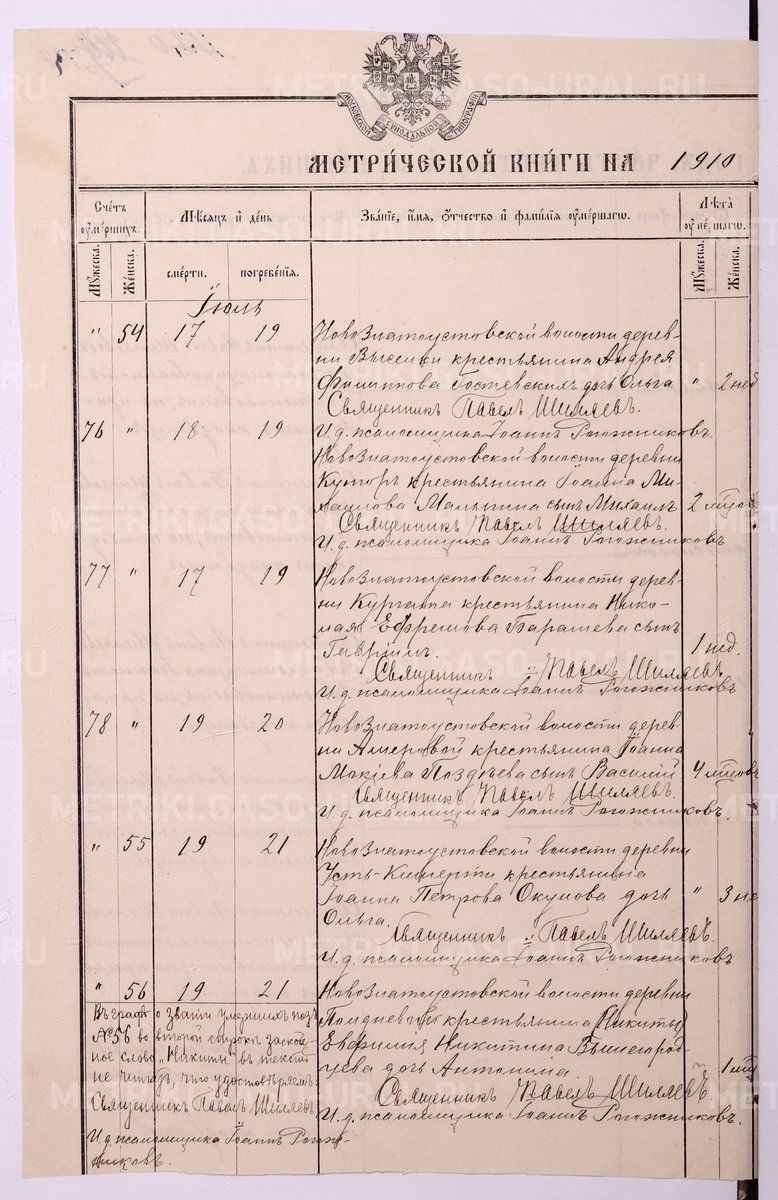 МОСКОВСКОЙ СУНОДАЛЬНОЙ ТИПОГРАФІИ
МЕТРИ́ЧЕСКОЙ КНИ́ГИ НА 1910
Счетъ ᲂумершихъ.
Мѣсяцъ и день
Зва́ніе, и́мя, ѻтчество и фами́лія ᲂуме́ршагѡ.
Лѣта̀ ᲂуме́ршагѡ.
Мꙋжеска.
Же́нска.
сме́рти.
погребе́нія.
Мꙋжеска.
Же́нска.
Іюль
" 54 17 19 Новозлатоустовской волости дерев-
ни Выселки крестьянина Андрея
Филиппова Гостевскихъ дочь Ольга " 2 нед
Священникъ Павелъ Шиляевъ.
И. д. псаломщика Іоаннъ Рогожниковъ.
76 " 18 19 Новозлатоустовской волости деревни
крестьянина Іоанна Ми-
хаилова сынъ Михаилъ 2
Священникъ Павелъ Шиляевъ.
И. д. псаломщика Іоаннъ Рогожниковъ
77 " 17 19 Новозлатоустовской волости дерев-
ни Кургата крестьянина Нико-
лая Ефремова сынъ
Гавріилъ. 1 нед.
Священникъ Павелъ Шиляевъ
И. д. псаломщика Іоаннъ Рогожниковъ
78 " 19 20 Новозлатоустовской волости дерев-
ни крестьянина Іоанна
Мокіева Поздѣева сынъ Василій 4
Священникъ Павелъ Шиляевъ.
И. д. псаломщика Іоаннъ Рогожниковъ.
" 55 19 21 Новозлатоустовской волости деревни
Усть-Кишерти крестьянина
Іоанна Петрова Окулова дочь " 3 не
Ольга.
Священникъ Павелъ Шиляевъ
И. д. псаломщика Іоаннъ Рогожниковъ
" 56 19 21 Новозлатоустовской волости деревни
крестьянина (Никиты)
Евфимія Никитина Вышегород-
цева дочь Антонина 1
Священникъ Павелъ Шиляевъ
И. д. псаломщика Іоаннъ Рогожниковъ.
Въ графѣ о званіи умершихъ подъ
№ 56 во второй строкѣ заскоб-
ное слово „Никиты" въ текстѣ
не читать, что удостовѣряемъ.
Священникъ Павелъ Шиляевъ
И. д. псаломщика Іоаннъ Рогож-
никовъ.
METRIKI.GASO-URAL.RU